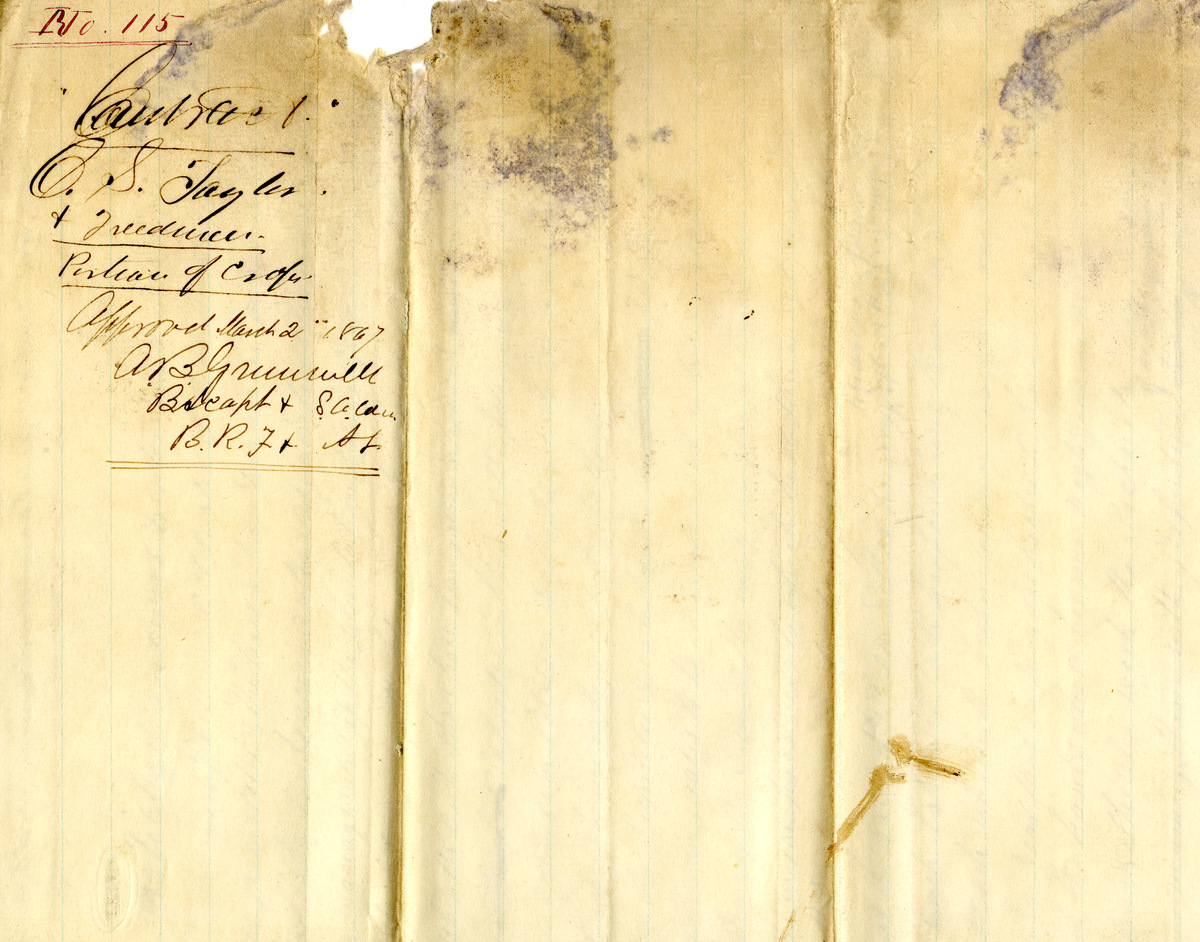 No. 115
"Contract."
O. S. Taylor.
& Freedmen.
Portion of Crops
Approved March 2" 1867
A B Grunwell
Bvt Capt &
B. R. F &